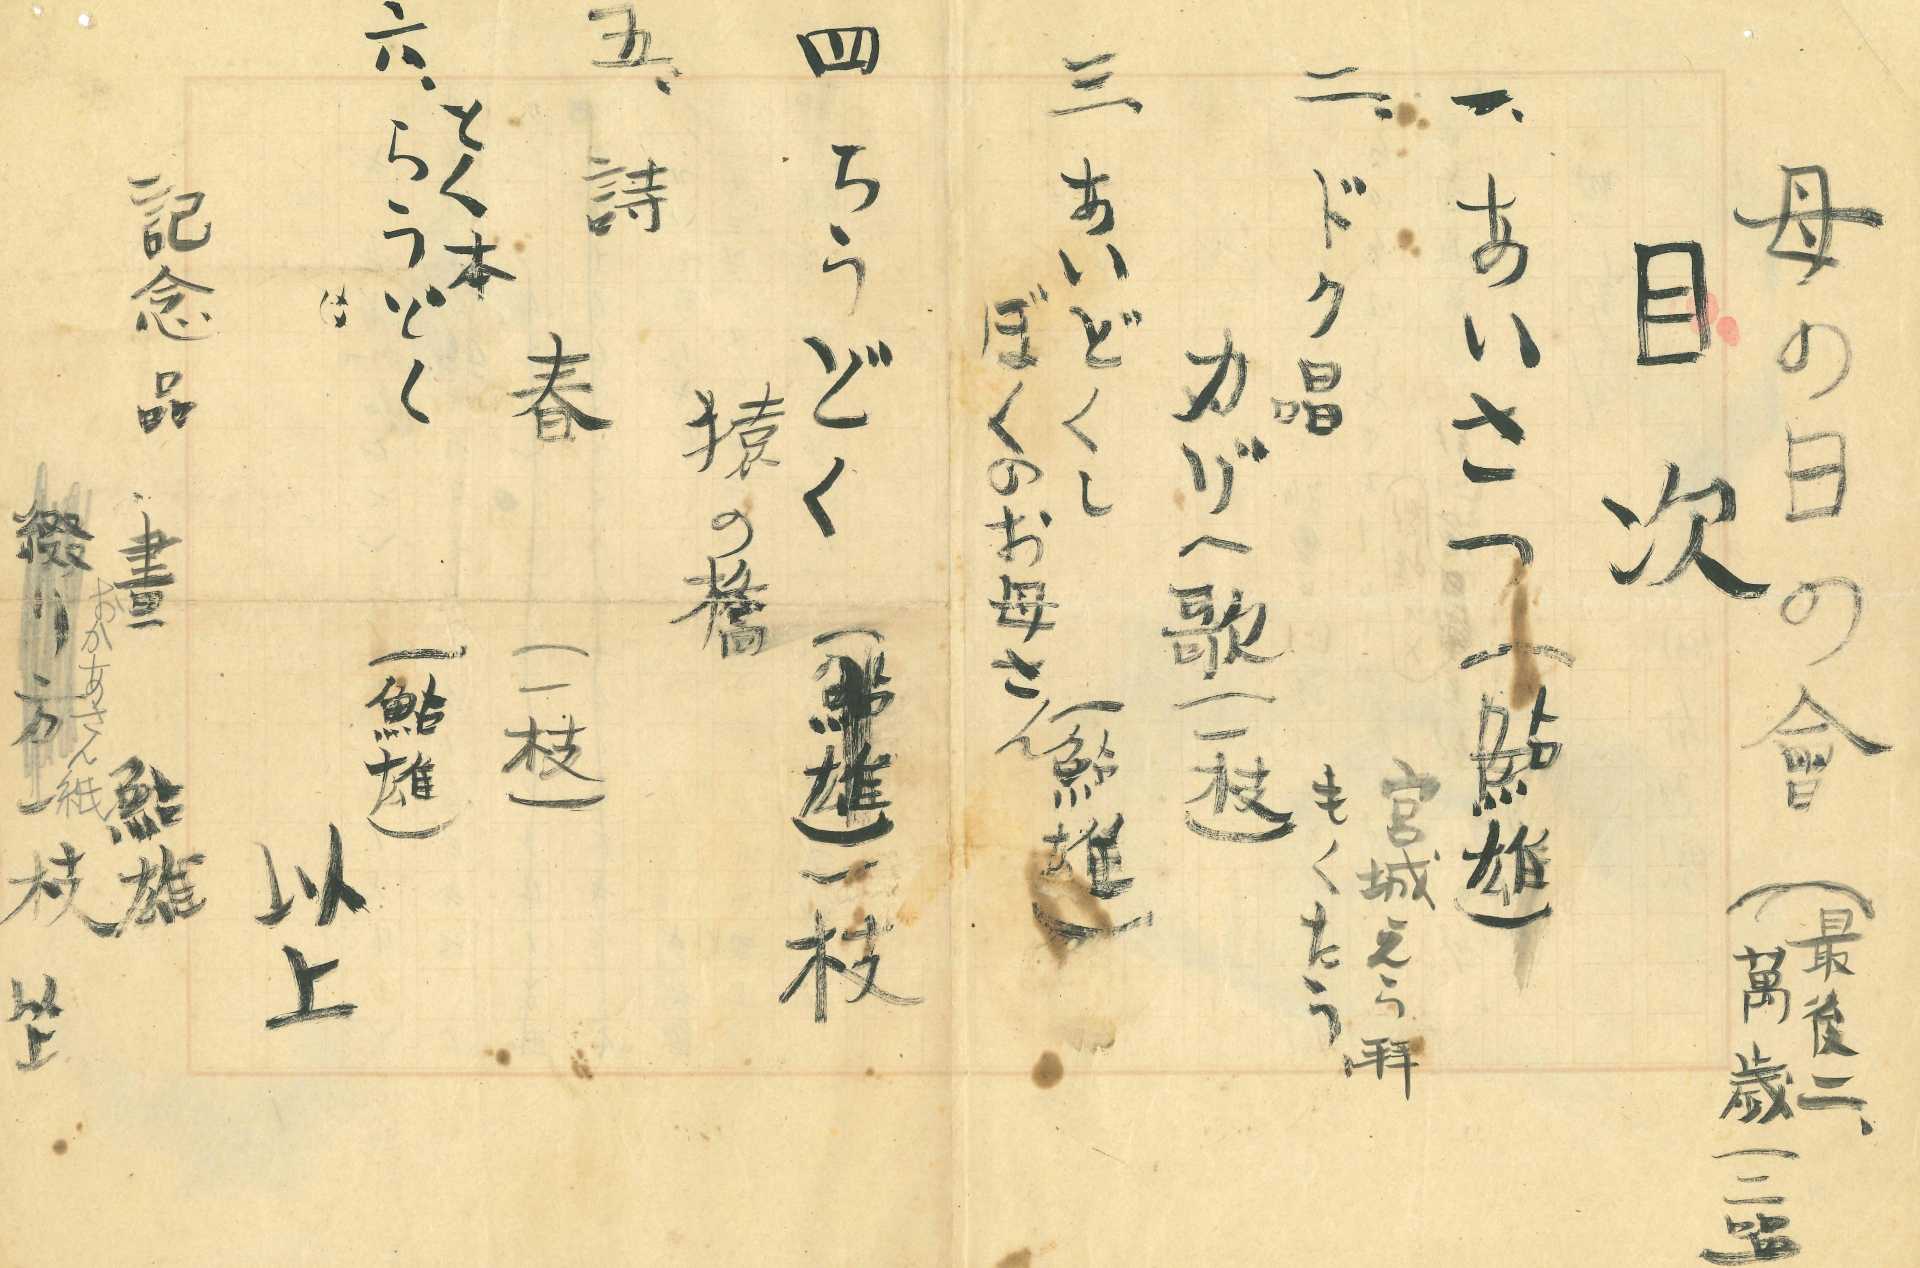 母の日の會
(最後ニ、
萬歳
目次
一、あいさつ(鮎雄)
宮城えう拝
もくたう
二、ドク唱
カリガヘ歌(一枝)
三、あいどくし(鮎雄)
ぼくのお母さん
四 ろうどく(鮎雄)一枝
猿の橋
五、詩
春(一枝)
とく本
六、らうどく(鮎雄)
以上
記念品、畫 鮎雄
おかあさん紙
綴り方 一枝
以上